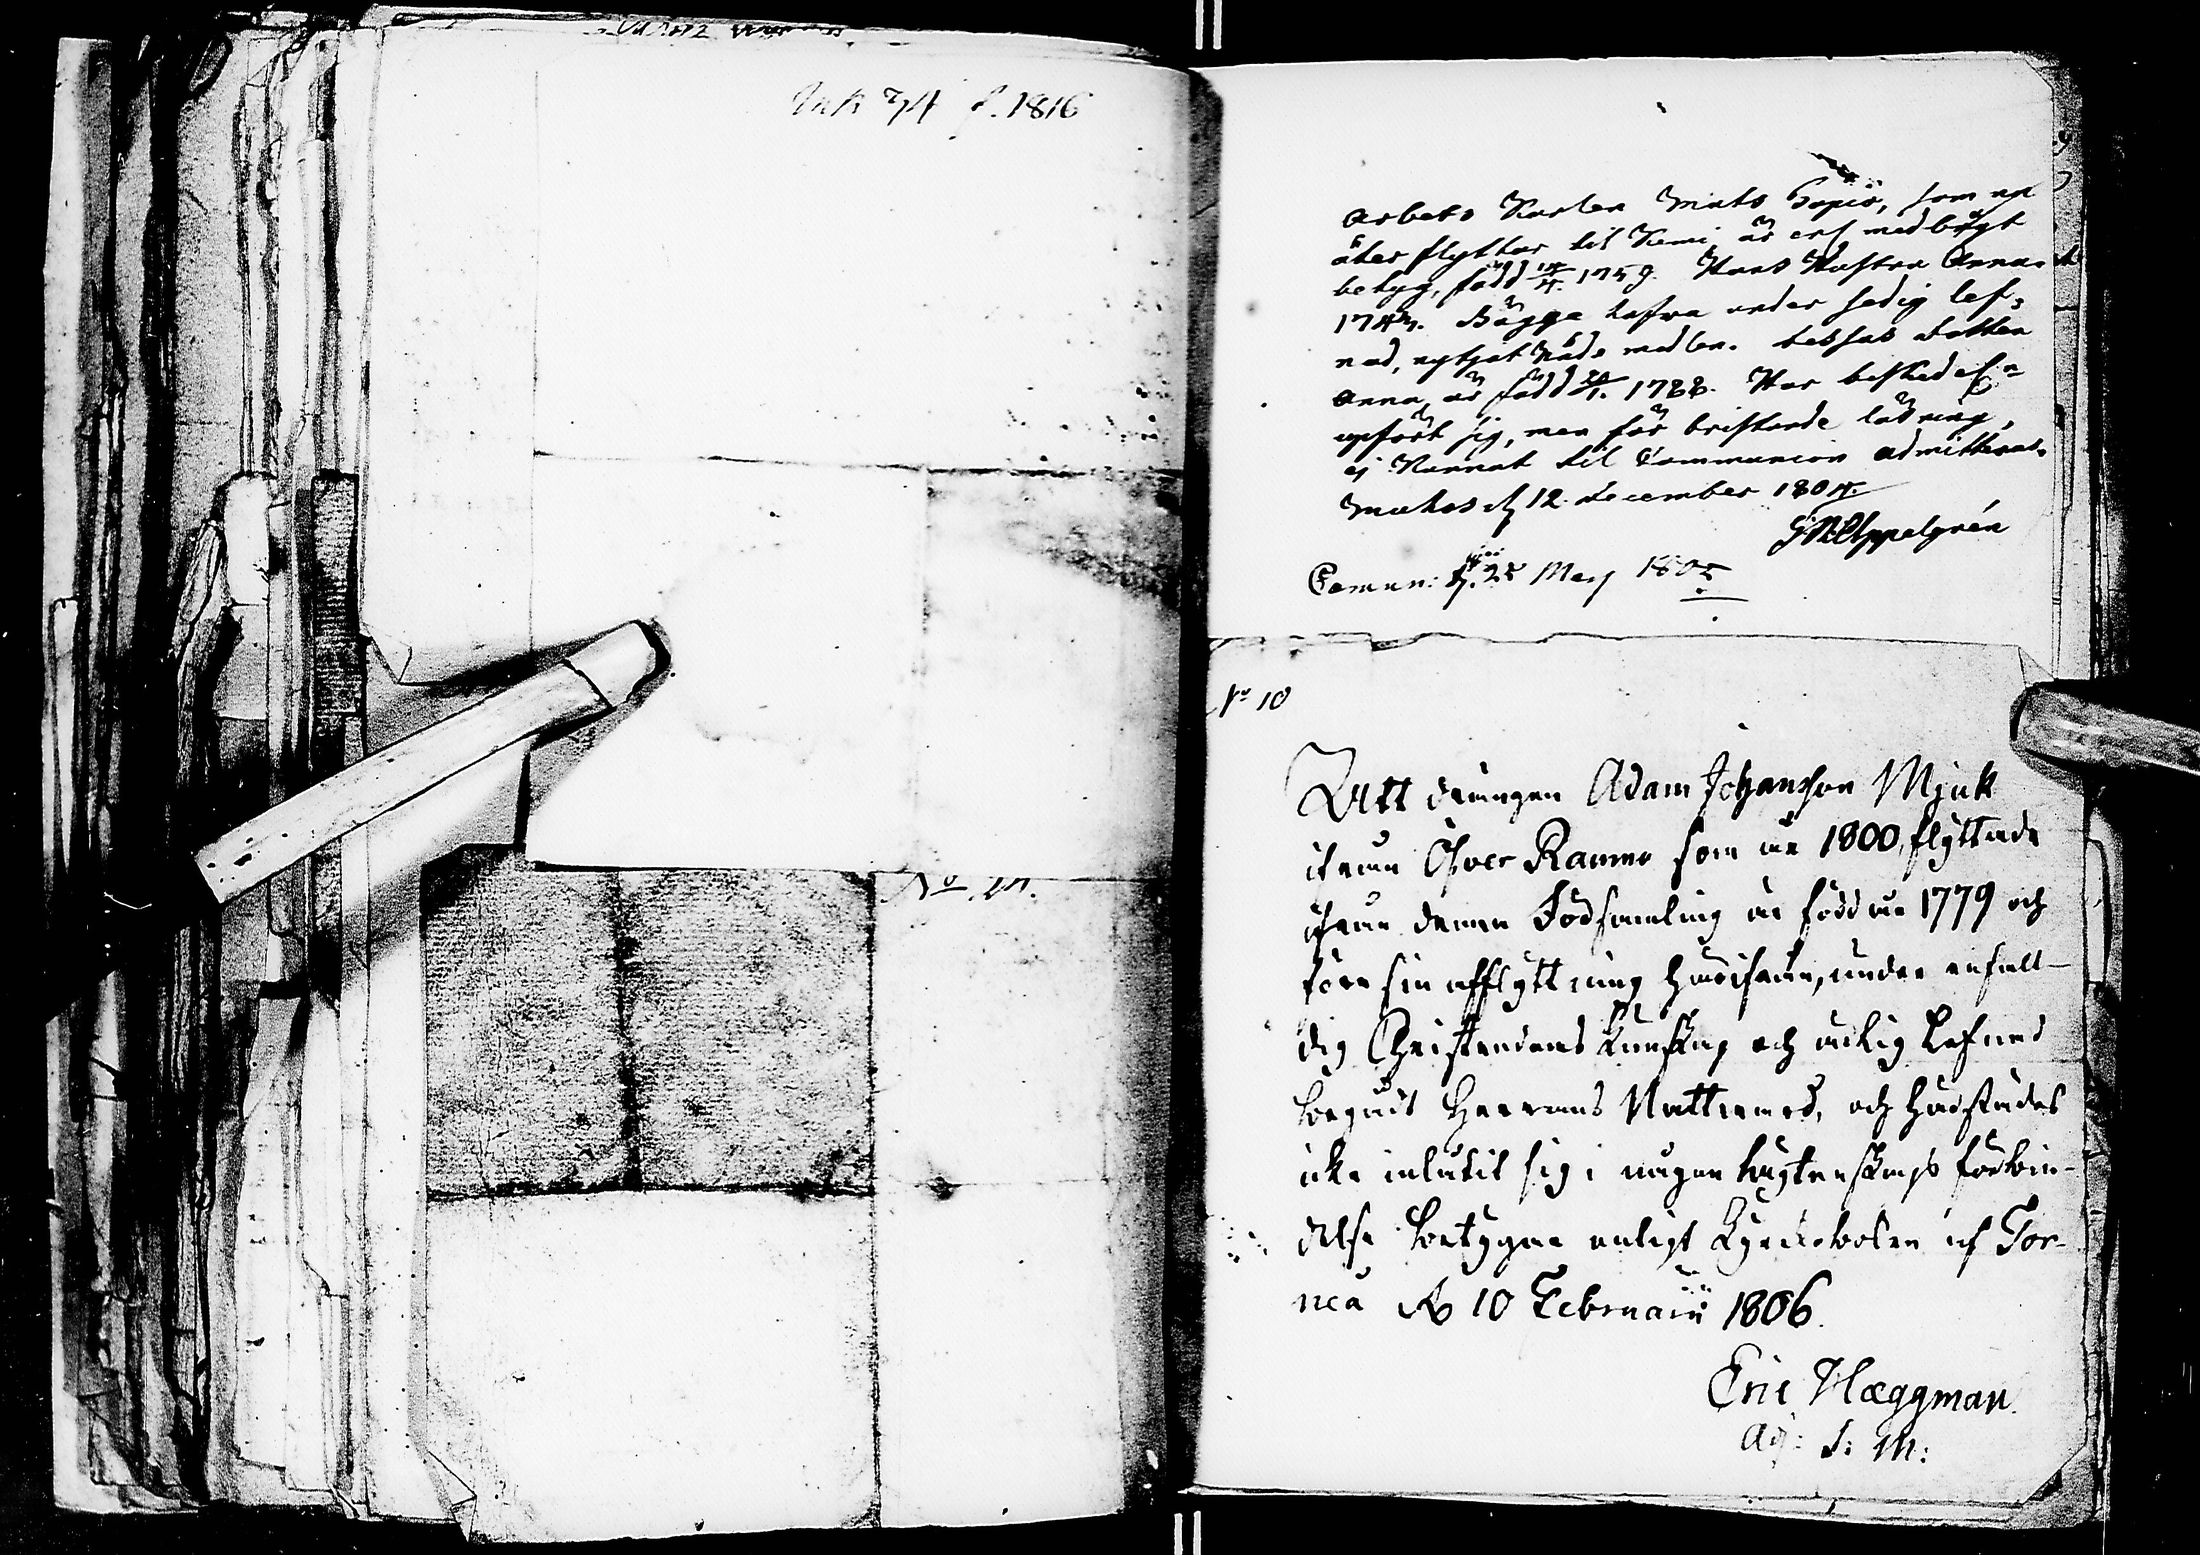 Ink 7/4 f. 1816
No 14.
Arbets Karlen Mats Sopio, som nu
åter flyttar til Kemi är enl medbragt
betyg, född 14/4. 1759. Hans Hustru Anna
1743. Bägge hafva under sedig lef-
nad, nytjat Nåde medlen. dessas dotter
Anna är född 20/1. 1788. Har beskedel:n
upfört sig, men för bristande läsning,
ej kunnat til Communion admitteras.
Muhos d 12 December 1804.
Appelgrén
Commun: d. 25 May 1805
No 10
Att drängen Adam Johansson Mjuk
ifrån Öfver Raumo som år 1800, flyttade
ifrån denna Församling är född år 1779 och
före sin afflyttning härifrån, under enfall-
dig Christendoms Kunskap och ärlig Lefnad
begådt Herrans Nattvard, och härstädes
icke inlåtit sig i någon ägtenskaps förbin-
delse betygar enligt Kyrckoboken af Tor-
neå d 10 Februarii 1806.
Eric Hæggman
Adj: S: M: